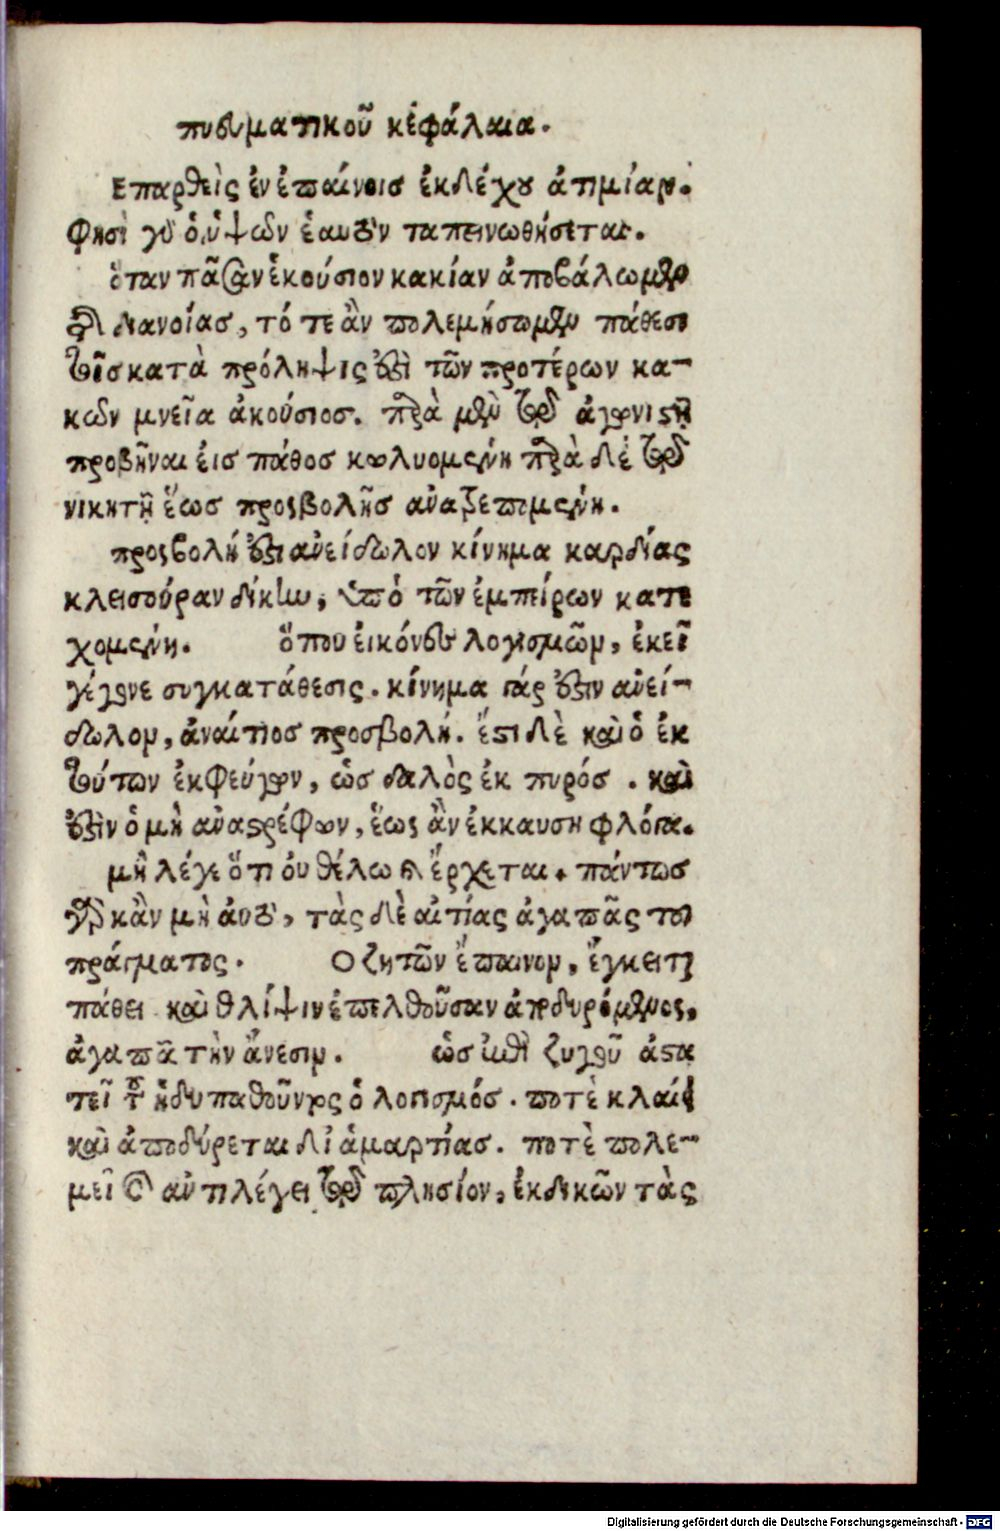 πνευματικοῦ κεφάλαια.
Επαρθεὶς ἐν ἐπαίνοις ἐκδέχου ἀτιμίαν.
φησὶ γὰρ ὁ ὑψῶν ἑαυτὸν ταπεινωθήσεται.
ὅταν πᾶσαν ἑκούσιον κακίαν ἀποβάλωμεν
ἐκ διανοίας, τό τε ἂν πολεμήσωμεν πάθεσι
τοῖς κατὰ πρόληψις ἐστὶ τῶν προτέρων κα-
κῶν μνεῖα ἀκούσιος. παρὰ μὲν τοῦ ἀγωνιστῆ
προβῆναι εἰς πάθος κωλυομένη παρὰ δὲ τοῦ
νικητῆ ἕως προσβολῆς ἀναῤῥεπομένη.
προσβολή ἐστι ἀνείδωλον κίνημα καρδίας
κλεισούραν δίκην, ὑπὸ τῶν ἐμπείρων κατε
χομένη. ὅπου εἰκόνες λογισμῶν, ἐκεῖ
γέγονε συγκατάθεσις. κίνημα γάρ ἐστιν ἀνεί-
δωλον, ἀναίτιος προσβολή. ἔστι δὲ καὶ ὁ ἐκ
τούτων ἐκφεύγων, ὡς δαλὸς ἐκ πυρός. καὶ
ἐστὶν ὁ μὴ ἀναστρέφων, ἕως ἂν ἐκκαύσῃ φλόγα.
μὴ λέγε ὅτι οὐ θέλω καὶ ἔρχεται. πάντως
γὰρ κἂν μὴ αὐτὸ, τὰς δὲ αἰτίας ἀγαπᾶς τοῦ
πράγματος. Ο ζητῶν ἔπαινον, ἔγκειται
πάθει καὶ θλίψιν ἐπελθοῦσαν ἀποδυρόμενος,
ἀγαπᾶ τὴν ἄνεσιν. ὡς ἐπὶ ζυγοῦ ἀστα
τεῖ τοῦ ἡδυπαθοῦντος ὁ λογισμός. ποτὲ κλαίει
καὶ ἀποδύρεται δι ἁμαρτίας. ποτὲ πολε-
μεῖ καὶ ἀντιλέγει τοῦ πλησίον, ἐκδικῶν τὰς
Digitalisierung gefördert durch die Deutsche Forschungsgemeinschaft - DFG